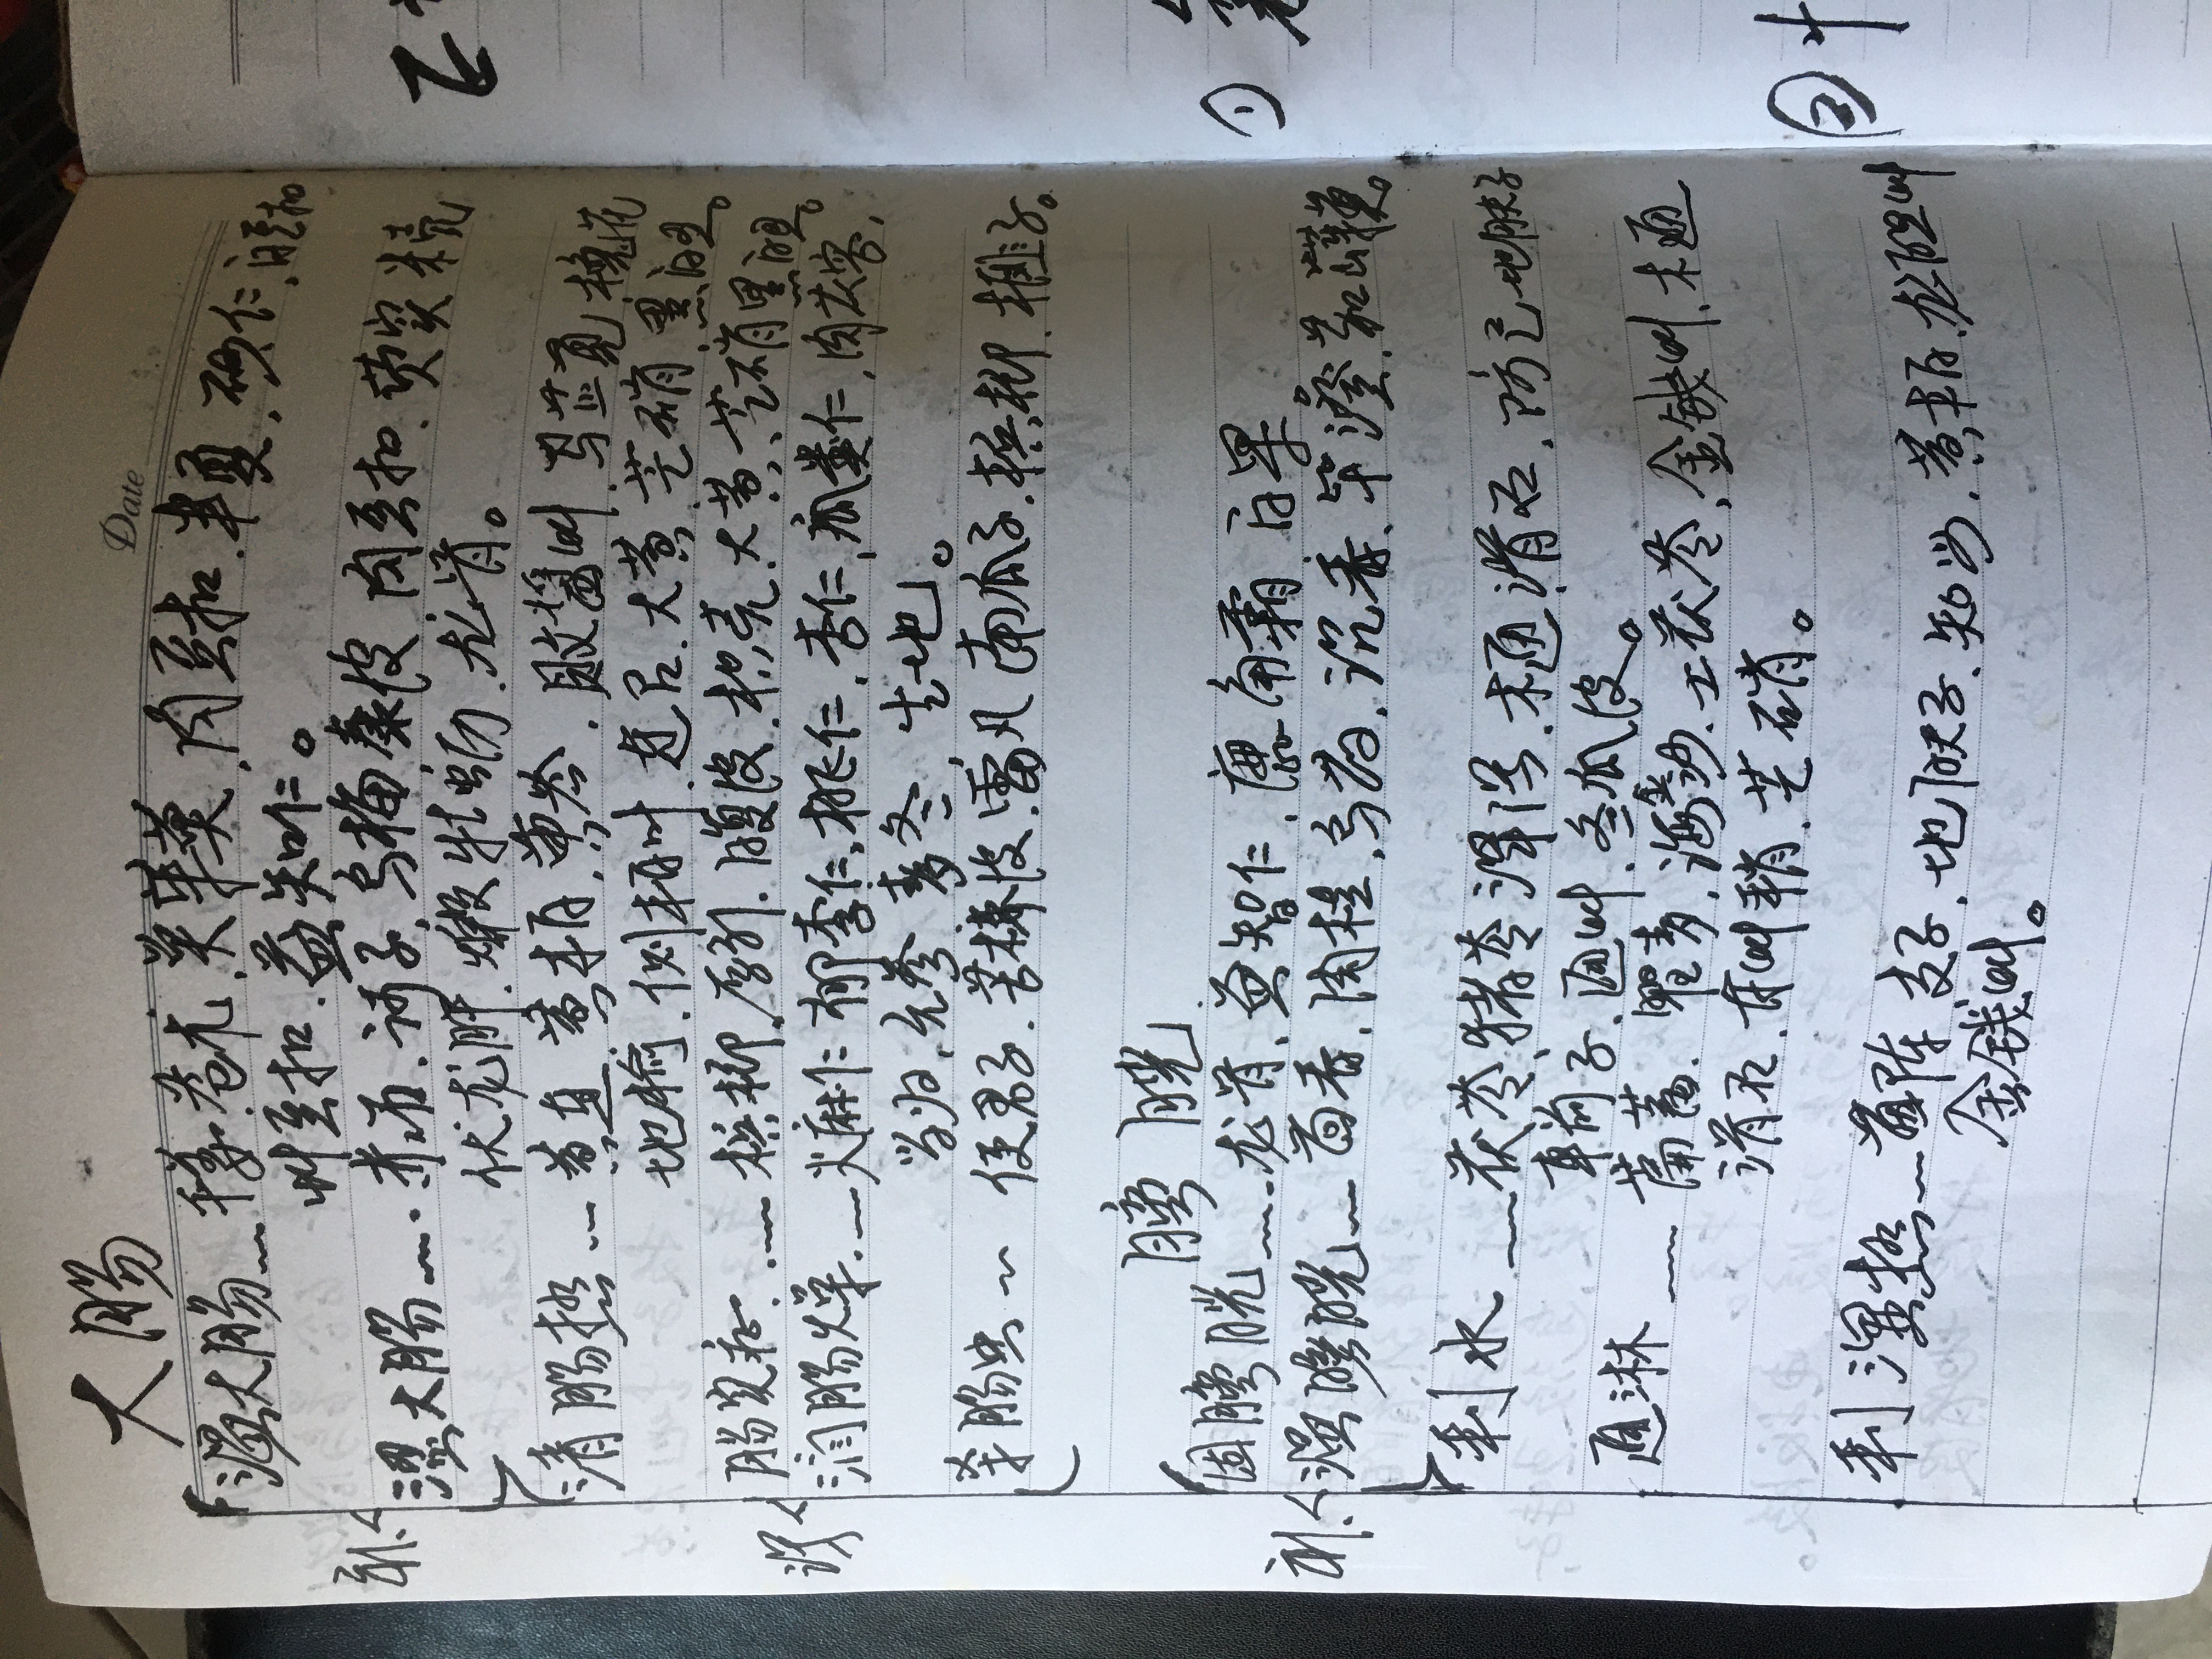 大肠
Date
温大肠 干姜、苍术、荜茇、肉豆扣、半夏、砂仁、白豆扣
草豆扣、益知仁。
补
涩大肠 赤石、诃子、乌梅、秦皮、肉豆扣、芡实、米壳
伏龙肝、煅牡蛎、龙骨。
清肠热 黄连、黄柏、黄芩、败酱草、马苋、槐花
地榆、侧柏叶、连召、大黄、芒硝、黑白丑。
肠实症 槟榔、厚朴、腹皮、枳壳、大黄、芒硝、黑白丑。
泻
润肠燥 火麻仁、郁李仁、桃仁、杏仁、瓜蒌仁、肉苁容,
当归、元参、麦冬、生地。
杀肠虫 使君子、苦楝皮、雷丸、南瓜子、槟榔、榧子。
膀胱
固膀胱 龙骨、益智仁、鹿角霜、白果。
补
温膀胱 茴香、肉桂、乌药、沉香、毕澄茄
利水 茯苓、猪苓、泽泻、木通、滑石、防己、地肤子
车前子、通草、冬瓜皮。
通淋 萹蓄、瞿麦、海金沙、土茯苓、金钱草、木通
滑石、甘草稍、芒硝。
利湿热 茵陈、支子、地肤子、知母、黄柏、龙胆草
金钱草。
①
②